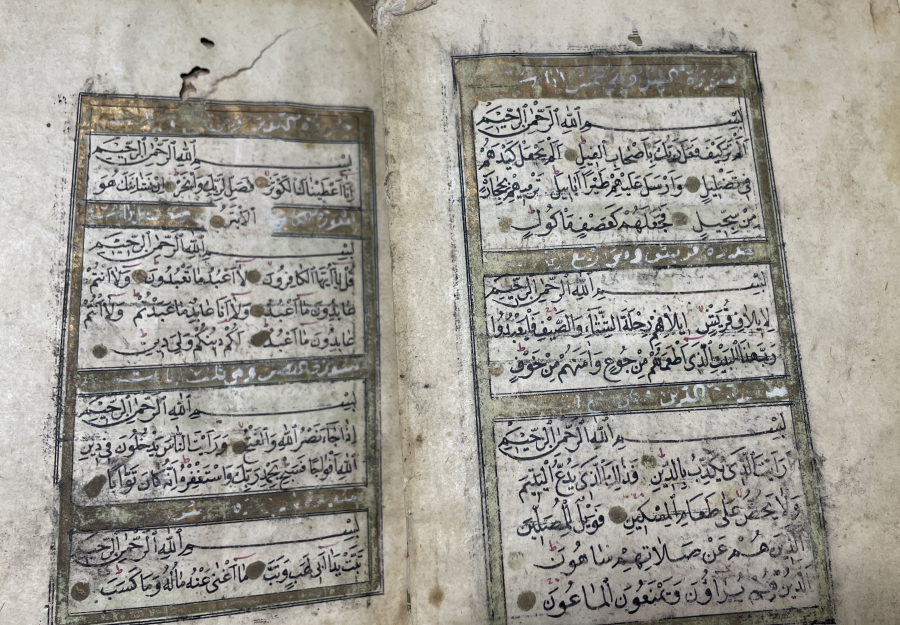 سورة الفيل وهي خمس ايات
بسم الله الرحمن الرحيم
ألم تر كيف فعل ربك بأصحاب الفيل ألم يجعل كيدهم
في تضليل وأرسل عليهم طيرا أبابيل ترميهم بحجارة
من سجيل فجعلهم كعصف مأكول
سورة قريش وهي اربع
بسم الله الرحمن الرحيم
لإيلاف قريش إيلافهم رحلة الشتاء والصيف فليعبدوا
رب هذا البيت الذي أطعمهم من جوع وآمنهم من خوف
سورة الدين
بسم الله الرحمن الرحيم
أرأيت الذي يكذب بالدين فذلك الذي يدع اليتيم
ولا يحض على طعام المسكين فويل للمصلين
الذين هم عن صلاتهم ساهون
الذين هم يراؤن ويمنعون الماعون
سورة الكوثر
بسم الله الرحمن الرحيم
إنا أعطيناك الكوثر فصل لربك وانحر إن شانئك هو
الأبتر
بسم الله الرحمن الرحيم
قل يا أيها الكافرون لا أعبد ما تعبدون ولا أنتم
عابدون ما أعبد ولا أنا عابد ما عبدتم ولا أنتم
عابدون ما أعبد لكم دينكم ولي دين
سورة النصر وهي ثلث ايات
بسم الله الرحمن الرحيم
إذا جاء نصر الله والفتح ورأيت الناس يدخلون في دين
الله أفواجا فسبح بحمد ربك واستغفره إنه كان توابا
بسم الله الرحمن الرحيم
تبت يدا أبي لهب وتب ما أغنى عنه ماله وما كسب